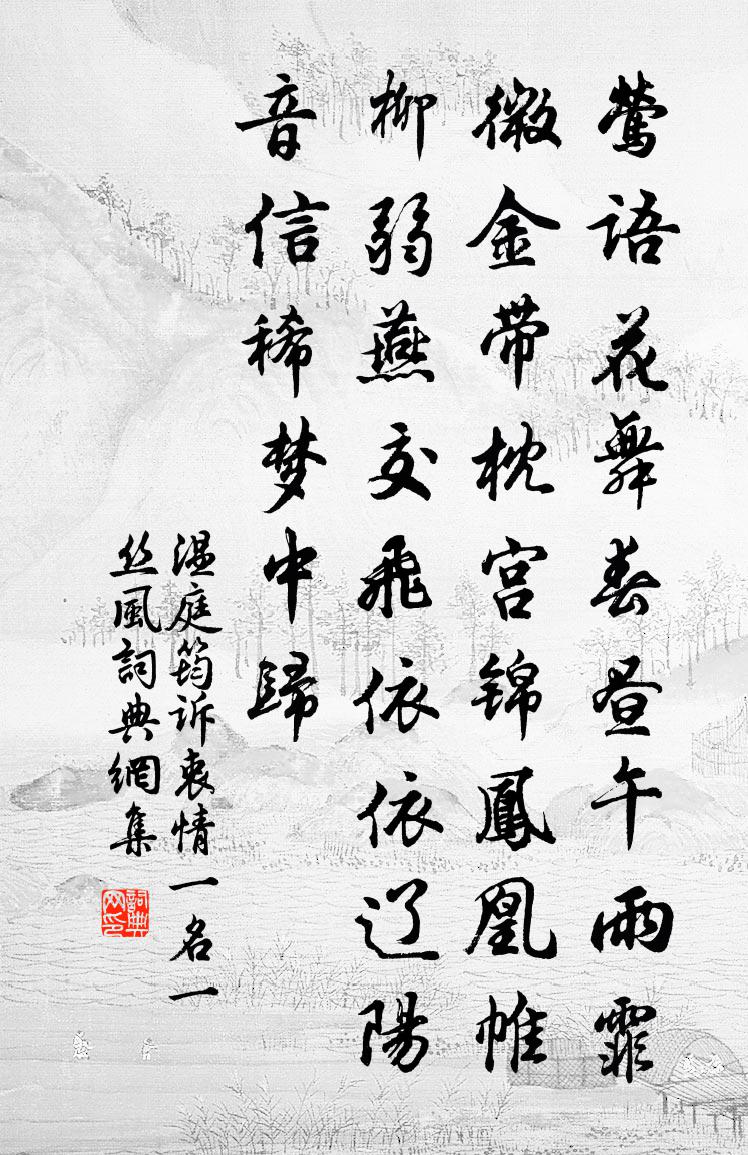 莺语花舞春昼午雨霏
微金带枕宫锦鳳凰帷
柳弱燕交飛依依辽陽
音信稀梦中歸
温庭筠诉衷情一名一
丝風詞典網集
詞典网印